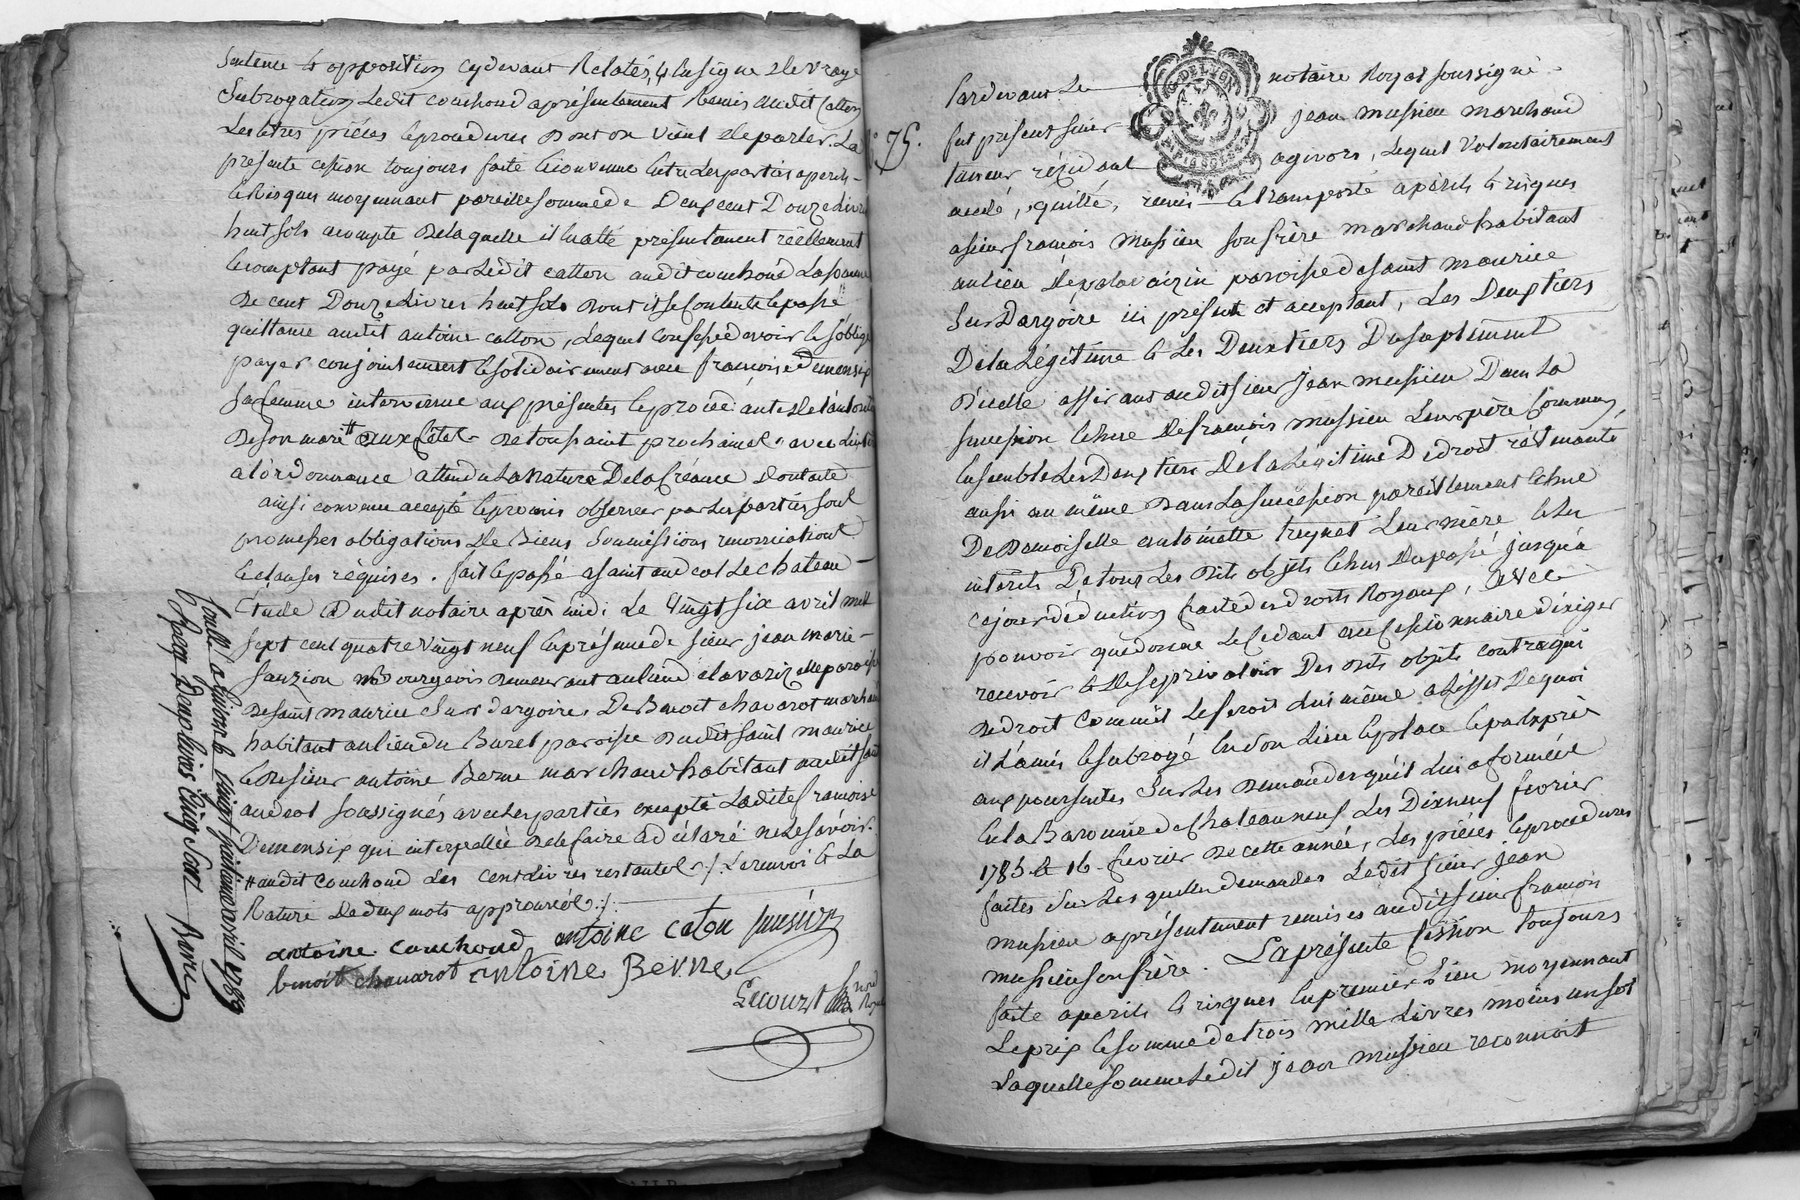 Sentence & opposition cydevant Relatés, & En signe de vraye
Subrogation Ledit couchoud a présentement Remis audit Catton
Les titres pièces & procedures dont on vient de parler. La
présente cession toujours faite & convenue entre Les parties a perils
& Risques moyennant pareille somme de Deux cent Douze Livres
huit sols acompte de laquelle il En a été présentement réellement
& comptant payé par Ledit catton audit couchoud La somme
De cent Douze Livres huit sols dont il se contente & passe
quittance audit antoine catton, Lequel confesse devoir & s'oblige
payer conjointement & solidairement avec françoise Demensix
sa femme intervenue aux présentes & procédante de l'autorité
De son mari # aux fêtes de toussaint prochaines avec Intérêts
a l'ordonnance attendu La Nature De la Créance dont a été
ainsi convenu accepté & promis observer par Les parties sous
promesses obligations De Biens soumissions renonciations
& clauses réquises. fait & passé a saint andeol Le chateau
Etude dudit notaire après midi Le vingt six avril mil
sept cent quatre vingt neuf En présence de sieur jean marie
sauzion bourgeois demeurant au lieu de la varizelle paroisse
De saint maurice sur dargoire, De Benoit chavarot marchand
habitant au lieu du Buret paroisse dudit saint maurice
& de sieur antoine Berne marchand habitant audit saint
andeol soussignés avec Les parties excepté Ladite françoise
Demensix qui interpellée de le faire a déclaré ne Le savoir.
# audit couchoud Les cent livres restantes ./. Le renvoi & La
Rature De deux mots approuvés ./.
antoine couchoud antoine caton sausion
benoit chavarot antoine Berne
Lecourt nore Royal
Conllé a Givors le vingt huit avril 1789
Reçu Cinq Sols
N° 75.
Pardevant Le notaire Royal soussigné
fut présent sieur jean mussieu marchand
taneur résidant a givors, Lequel Volontairement
a cédé, quitté, remis & transporté a périls & risques
a sieur françois mussieu son frère marchand habitant
au lieu de valavaizin paroisse de saint maurice
sur Dargoire ici présent et acceptant, Les Deux tiers
De la Légitime & Les Deux tiers Du suplément
D'icelle afferants audit sieur jean mussieu Dans La
succession Echue de françois mussieu Leur père Commun,
Ensemble Les Deux tiers De la Légitime De droit résultante
aussi au même Dans La succession pareillement Echue
De Demoiselle antoinette treynet Leur mère & Les
intérêts De tous Les dits objets Echus du passé jusqu'a
ce jour déduction faite des droits Royaux, avec
pouvoir que donne Le Cédant au Cessionnaire d'exiger
recevoir & de se prévaloir Des dits objets contre qui
De droit Comme il Le feroit Lui même a L'effet De quoi
il L'a mis & subrogé En son Lieu & place & par Exprès
aux poursuites sur Les demandes qu'il Lui a formées
En la Baronnie de Chateauneuf Les Dix neuf fevrier
1785 & 16 fevrier De cette année, Les pièces & procédures
faites sur Lesquelles demandes Ledit sieur jean
mussieu a présentement remises audit sieur françois
mussieu son frère. La présente Cession toujours
faite a perils & risques En premier Lieu moyennant
Le prix & somme de trois mille Livres moins un sol
Laquelle somme Ledit jean mussieu reconnoit